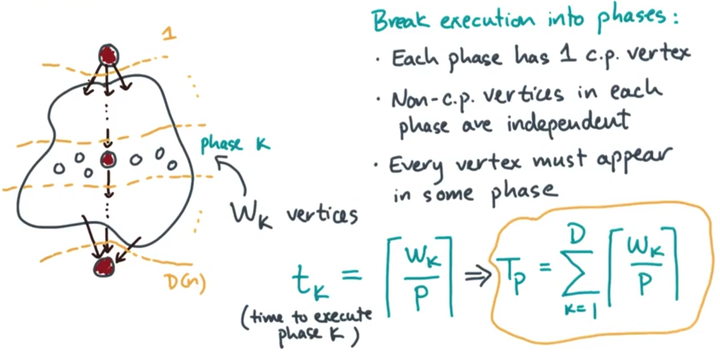 1
Break execution into phases:
• Each phase has 1 c.p. vertex
• Non-c.p. vertices in each
phase are independent
• Every vertex must appear
in some phase
phase k
W_k vertices
D(n)
t_k = ⌈W_k / P⌉ ⇒ T_P = ∑_{k=1}^{D} ⌈W_k / P⌉
(time to execute
phase k)